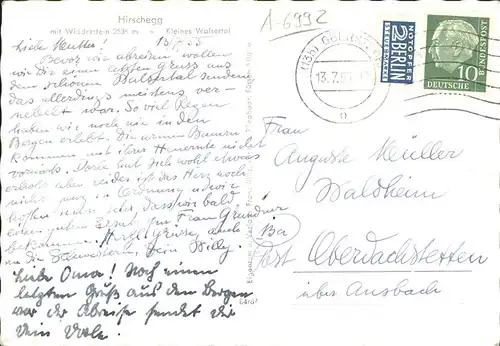 Hirschegg
mit Widderstein 2536 m
Kleines Walsertal
A-6992
13/7.55
Liebe Mutter!
Bevor wir abreisen wollen
wir Dir einen letzten Gruss aus
dem schönen Walsertal senden
das allerdings meistens ver-
nebelt war. So viel Regen
haben wir noch nie in den
Bergen erlebt. Die armen Bauern
kommen mit ihrer Heuernte nicht
vorwärts. Dorle hat sich wohl etwas
erholt aber leider ist das Herz noch
nicht ganz in Ordnung u. wir
hoffen nun sehr dass wir bald
einen guten Ersatz für Frau
bekommen. Herzl. Grüsse, auch
an die Schwestern, Dein Willy.
Liebe Oma! Noch einen
letzten Gruß aus den Bergen
vor der Abreise sendet dir
dein Dorle.
(13b)
13.7.55
NOTOPFER
2 BERLIN
STEUERMARKE
10
DEUTSCHE
BUNDESPOST
Frau
Auguste Müller
Waldheim
Bei
Post Oberdachstetten
über Ansbach